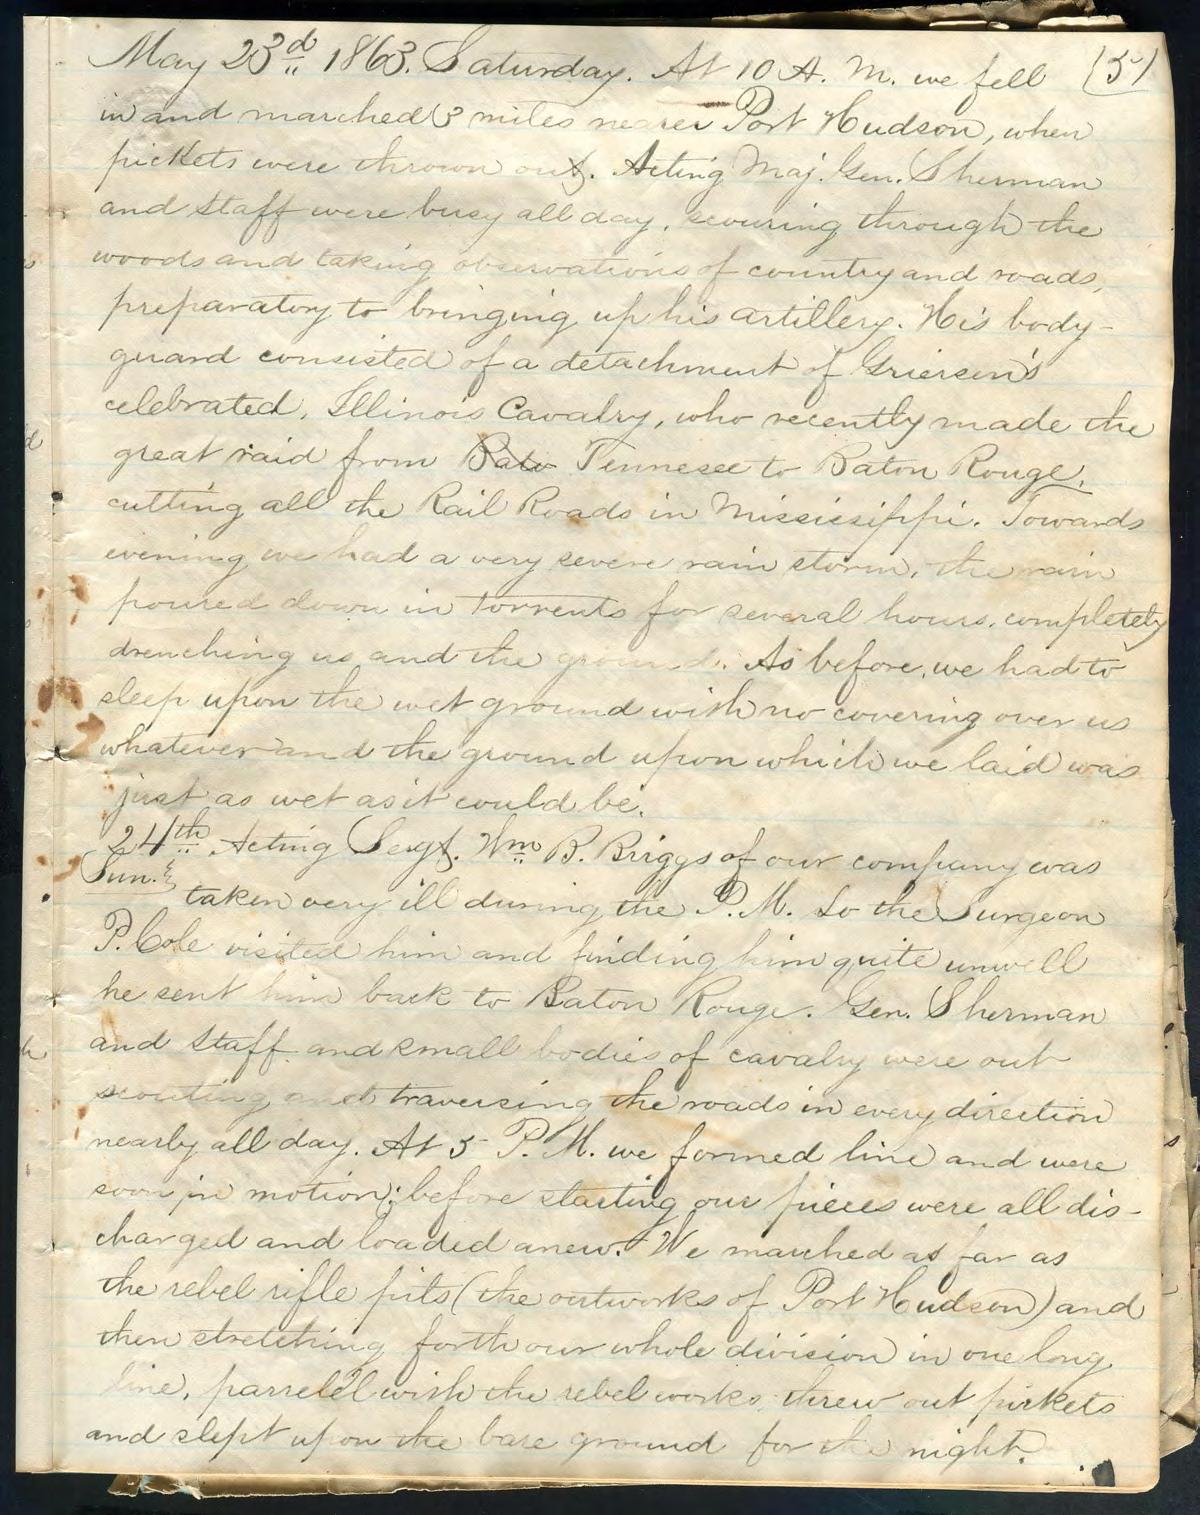 May 23d 1863. Saturday. At 10 A. M. we fell (5)
in and marched 3 miles nearer Port Hudson, when
pickets were thrown out. Acting Maj. Gen. Sherman
and staff were busy all day, scouring through the
woods and taking observations of country and roads,
preparatory to bringing up his artillery. His body-
guard consisted of a detachment of Grierson's
celebrated, Illinois Cavalry, who recently made the
great raid from Bato Tennesee to Baton Rouge,
cutting all the Rail Roads in Mississippi. Towards
evening we had a very severe rain storm, the rain
poured down in torrents for several hours, completely
drenching us and the ground. As before, we had to
sleep upon the wet ground with no covering over us
whatever and the ground upon which we laid was
just as wet as it could be.
24th Acting Sergt. Wm B. Briggs of our company was
Sun. taken very ill during the P. M. So the Surgeon
P. Cole visited him and finding him quite unwell
he sent him back to Baton Rouge. Gen. Sherman
and staff and small bodies of cavalry were out
scouting and traversing the roads in every direction
nearly all day. At 5 P. M. we formed line and were
soon in motion; before starting our pieces were all dis-
charged and loaded anew. We marched as far as
the rebel rifle pits (the outworks of Port Hudson) and
then stretching forth our whole division in one long
line, parrelel with the rebel works, threw out pickets
and slept upon the bare ground for the night.